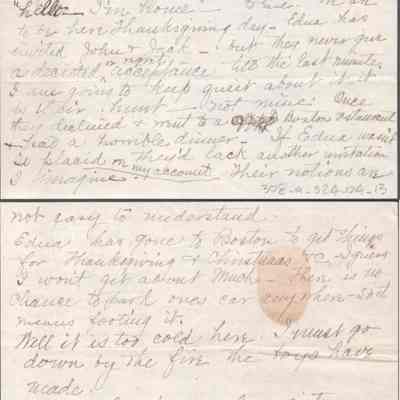 "hello - I'm home"
to be here Thanksgiving day - Edna has
invited John & Jack - but they never give
a decided or right acceptance till the last minute.
I am going to keep quiet about it it
is their hunt - not mine. Once
they declined & went to a Boston restaurant
& had a horrible dinner - If Edna wasn't
so placid on my account they'd lack another invitation
I imagine. Their notions are
not easy to understand.
Edna has gone to Boston to get things
for Thanksgiving & Christmas I guess
I won't get about much - There is no
chance to park ones car anywhere so it
means footing it.
Well it is too cold here. I must go
down by the fire the boys have
made.